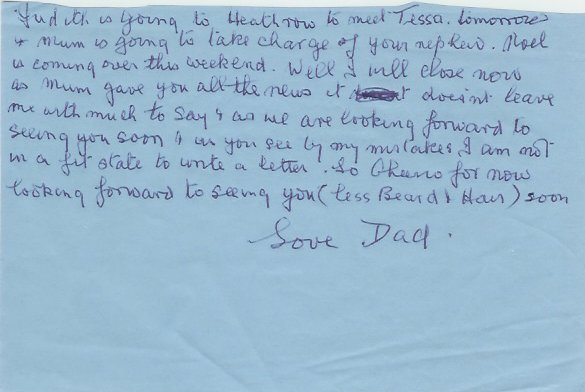 Judith is going to Heathrow to meet Tessa. tomorrow
& mum is going to take charge of your nephew. Noel
is coming over this weekend. Well I will close now
as Mum gave you all the news it doesint leave
me with much to say & as we are looking forward to
seeing you soon & as you see by my mistakes I am not
in a fit state to write a letter. So Cheerio for now
looking forward to seeing you (less Beard & Hair) soon
Love Dad.